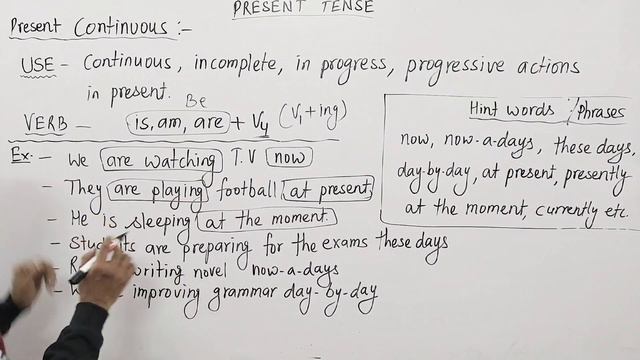 PRESENT TENSE
Present Continuous :-
USE - Continuous, incomplete, in progress, progressive actions
in present.
Be
VERB - is, am, are + V4 (V1 + ing)
Hint words / Phrases
now, now-a-days, these days,
day-by-day, at present, presently
at the moment, currently etc.
Ex:- - We are watching T.V now
- They are playing football at present
- He is sleeping at the moment.
- Students are preparing for the exams these days
- writing novel now-a-days
- improving grammar day-by-day